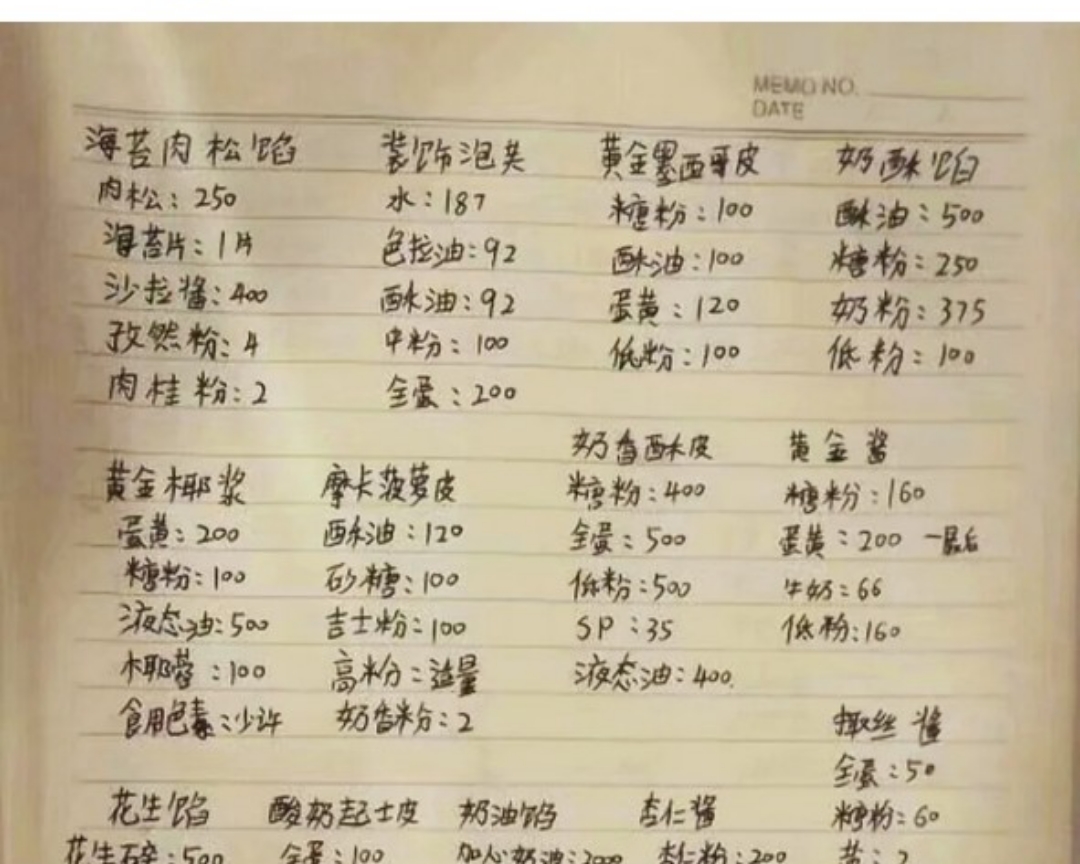 MEMO NO.
DATE
海苔肉松馅 装饰泡芙 黄金墨西哥皮 奶酥馅
肉松：250 水：187 糖粉：100 酥油：500
海苔片：1片 色拉油：92 酥油：100 糖粉：250
沙拉酱：400 酥油：92 蛋黄：120 奶粉：375
孜然粉：4 中粉：100 低粉：100 低粉：100
肉桂粉：2 全蛋：200
奶香酥皮 黄金酱
黄金椰浆 摩卡菠萝皮 糖粉：400 糖粉：160
蛋黄：200 酥油：120 全蛋：500 蛋黄：200 一最后
糖粉：100 砂糖：100 低粉：500 牛奶：66
液态油：500 吉士粉：100 SP：35 低粉：160
椰蓉：100 高粉：适量 液态油：400.
食用色素：少许 奶香粉：2 椰丝酱
全蛋：50
花生馅 酸奶起士皮 奶油馅 杏仁酱 糖粉：60
花生碎：500 全蛋：100 加心奶油：2000 杏仁粉：200 盐：2